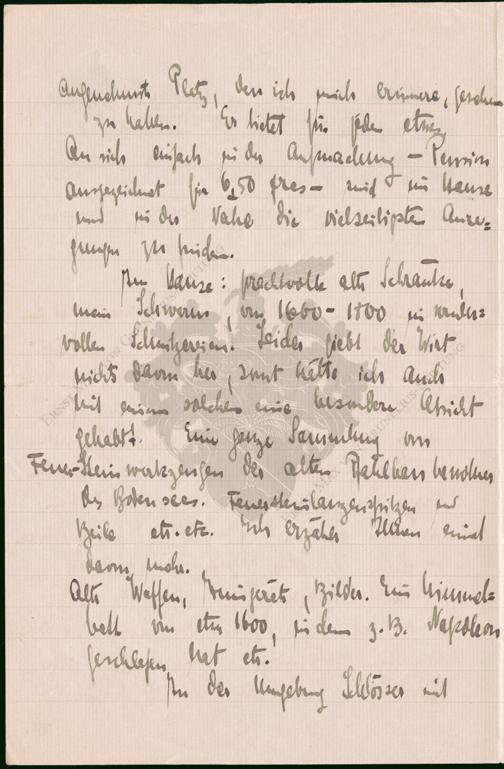 angenehmste Platz, den ich mich erinnere, gesehen
zu haben. Er bietet für jeden etwas
An sich einfach in der Aufmachung – Pension
ausgezeichnet für 6,50 frcs – sind im Hause
und in der Nähe die vielseitigsten Anre=
gungen zu finden.
Im Hause: prachtvolle alte Schränke,
mein Schwarm, von 1600-1800 in wunder=
vollen Schnitzereien. Leider giebt der Wirt
nichts davon her, sonst hätte ich auch
mit einem solchen eine besondere Absicht
gehabt! Eine ganze Sammlung von
Feuer-Steinwerkzeugen der alten Pfahlbau bewohner
des Bodensees. Feuersteinlanzenspitzen und
Keile etc. etc. Ich erzähle Ihnen einmal
davon mehr.
Alte Waffen, Zinngeräte, Bilder. Ein Himmel=
bett von etwa 1600, in dem z.B. Napoleon
geschlafen hat etc.
In der Umgebung Schlösser mit